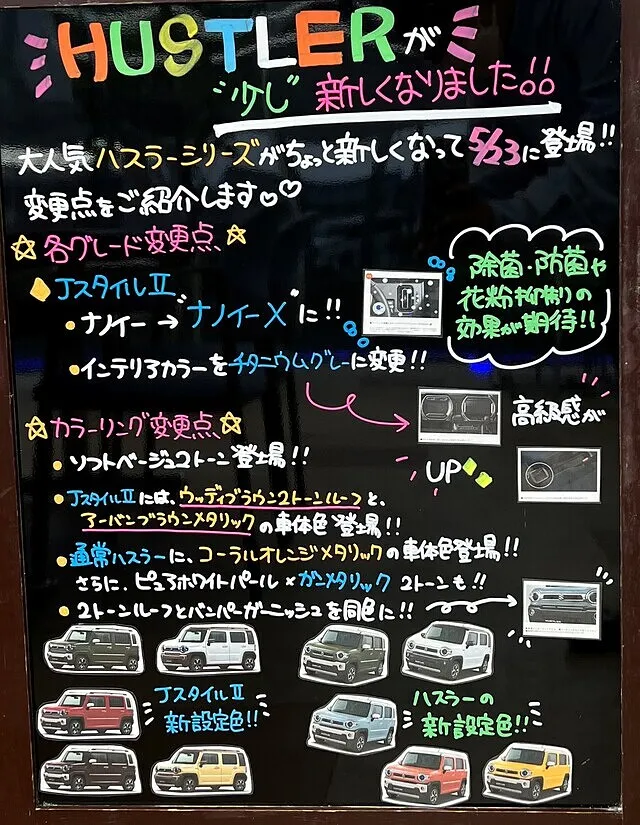 HUSTLERが
少し 新しくなりました!!
大人気ハスラーシリーズがちょっと新しくなって5/23に登場!!
変更点をご紹介します♡♡
☆各グレード変更点☆
◆JスタイルⅡ
・ナノイー→"ナノイーX"に!!
除菌・防菌や
花粉抑制りの
効果が期待!!
・インテリアカラーをチタニウムグレーに変更!!
高級感が
UP
☆カラーリング変更点☆
・ソフトベージュ2トーン登場!!
・JスタイルⅡには、ウッディブラウン2トーンルーフと、
アーバンブラウンメタリックの車体色登場!!
・通常ハスラーに、コーラルオレンジメタリックの車体色登場!!
さらに、ピュアホワイトパール×ガンメタリック 2トーンも!!
・2トーンルーフとバンパーガーニッシュを同色に!!
JスタイルⅡ
新設定色!!
ハスラーの
新設定色!!